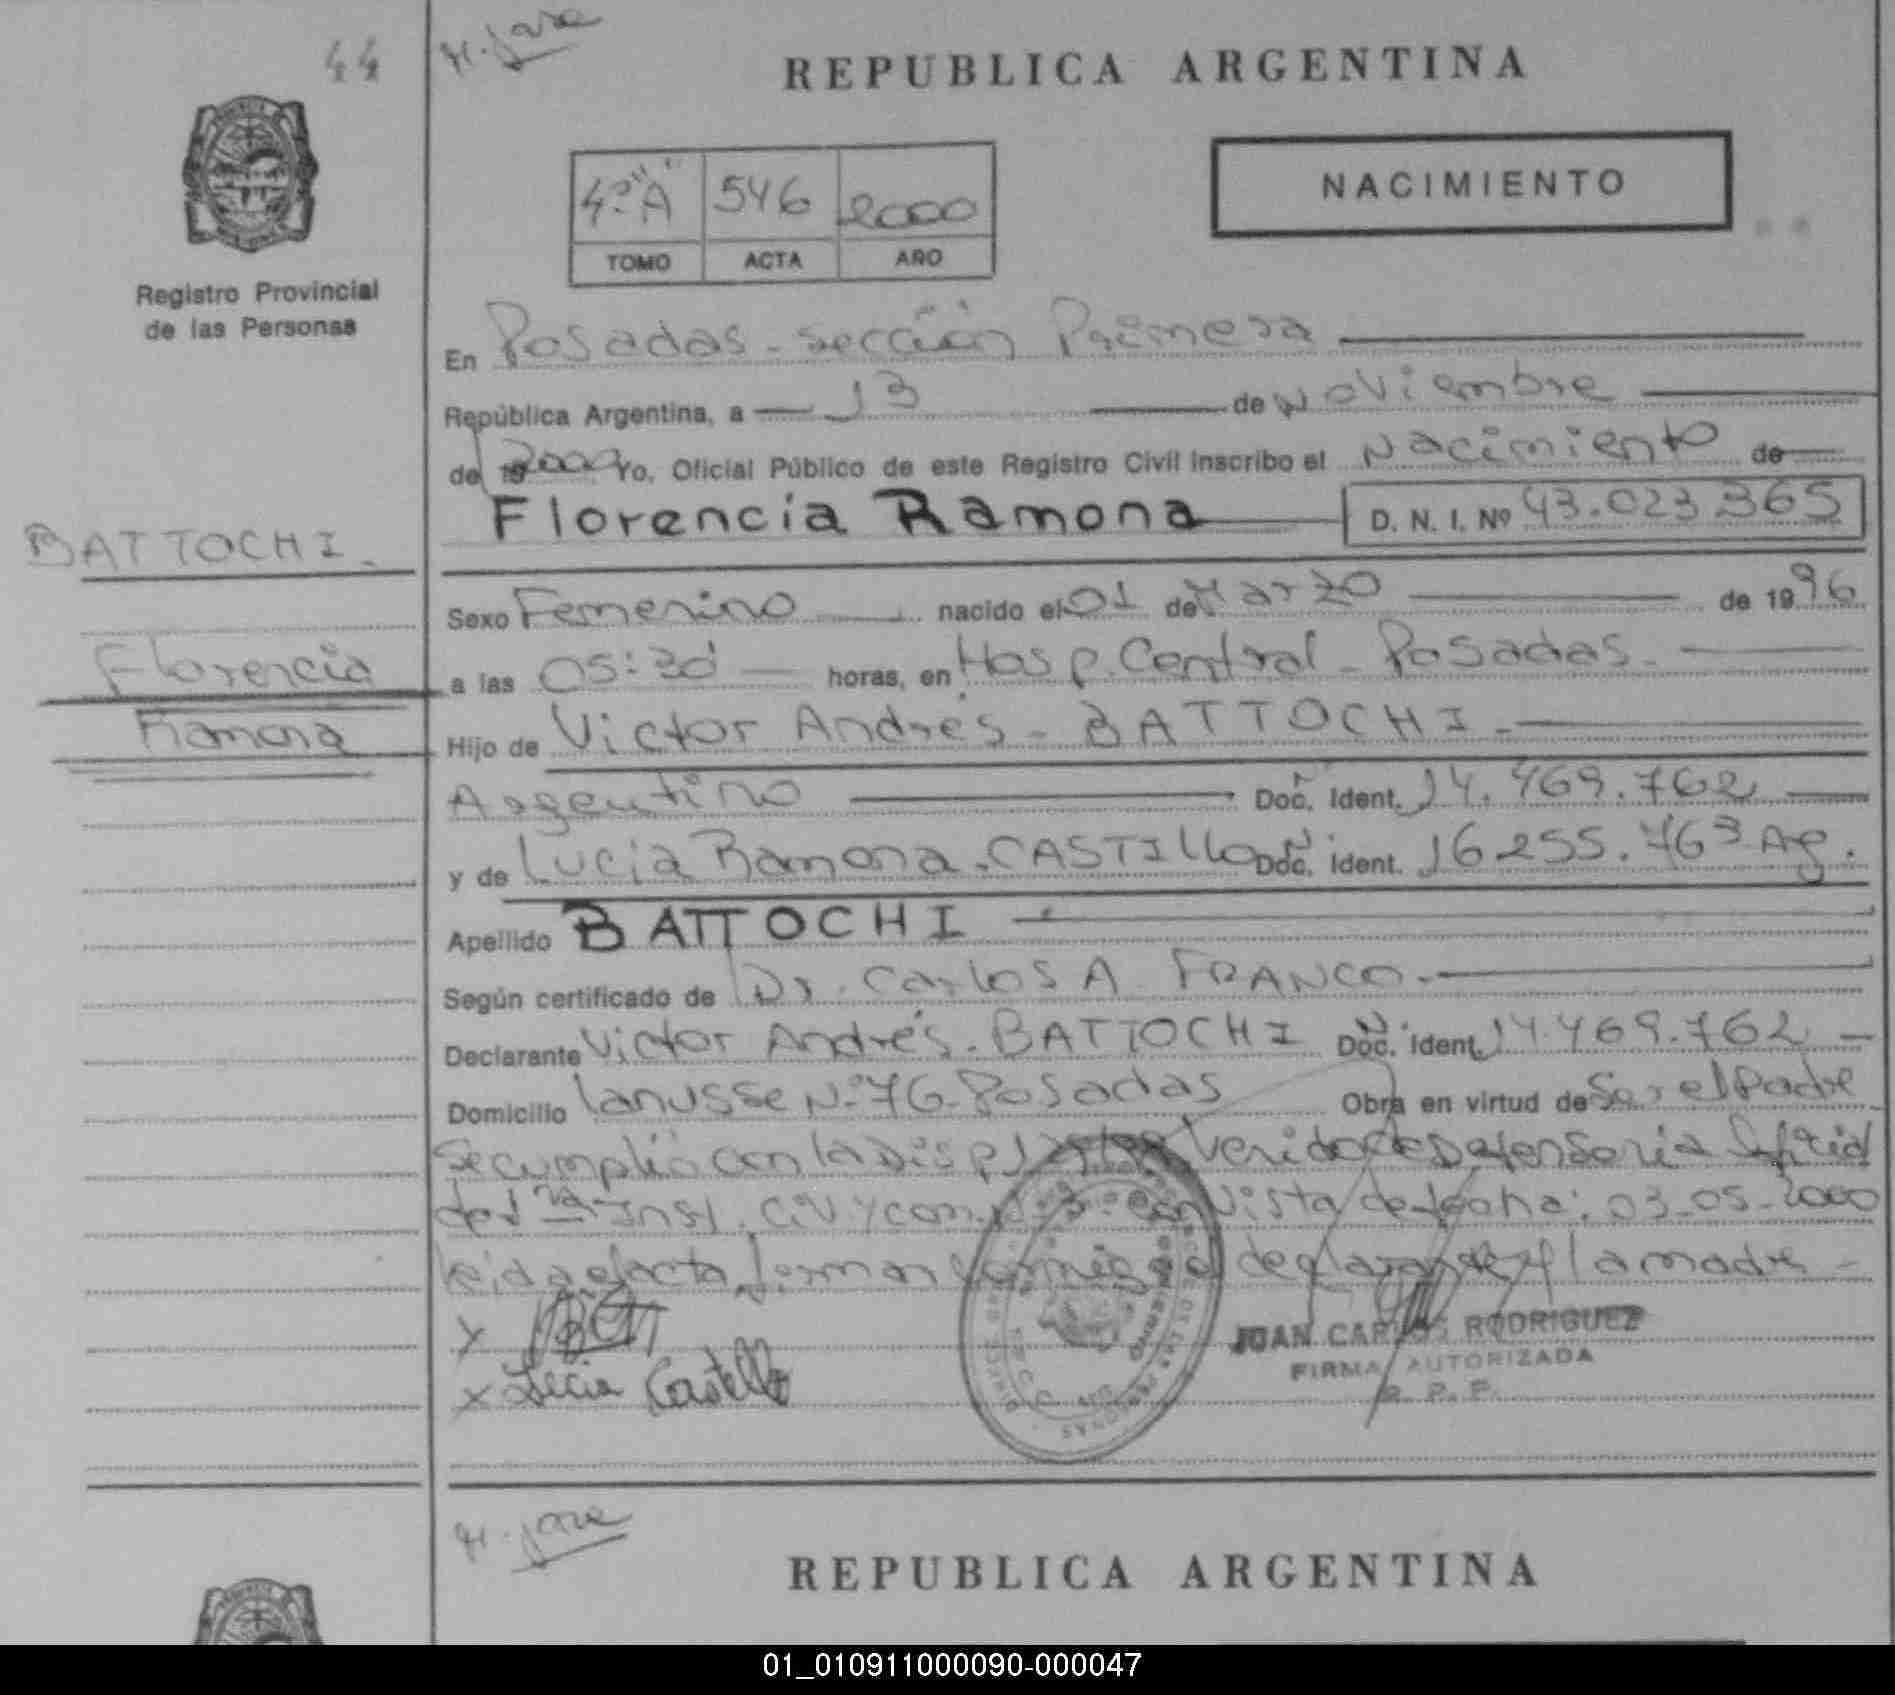 44
H. Jase
REPUBLICA ARGENTINA
4º "A" 546 2000
TOMO ACTA AÑO
NACIMIENTO
Registro Provincial
de las Personas
En Posadas - sección Primera
República Argentina, a 13 de Noviembre
de 2000 Yo, Oficial Público de este Registro Civil inscribo el Nacimiento de
Florencia Ramona D. N. I. Nº 43.023.365
BATTOCHI.
Florencia
Ramona
Sexo Femenino nacido el 01 de Marzo de 1996
a las 05:30 horas, en Hosp. Central - Posadas.
Hijo de Victor Andrés - BATTOCHI -
Argentino Doc. Ident. 14.469.762
y de Lucia Ramona. CASTILLO Doc. Ident. 16.255.763 Ag.
Apellido BATTOCHI
Según certificado de Dr. Carlos A. FRANCO.
Declarante Victor Andrés. BATTOCHI Doc. Ident. 14.469.762
Domicilio Lanusse Nº 76 - Posadas Obra en virtud de Ser el Padre
Se cumplió con la Disp. de Defensoria Oficial
de 1ra Inst. Civ y Com. Nº 3. con vista de fecha: 03-05-2000
leida el acta firman conmigo el declarante y la madre -
x
x Lucia Castillo
JUAN CARLOS RODRIGUEZ
FIRMA AUTORIZADA
R. P. P.
H. Jase
REPUBLICA ARGENTINA
01_010911000090-000047